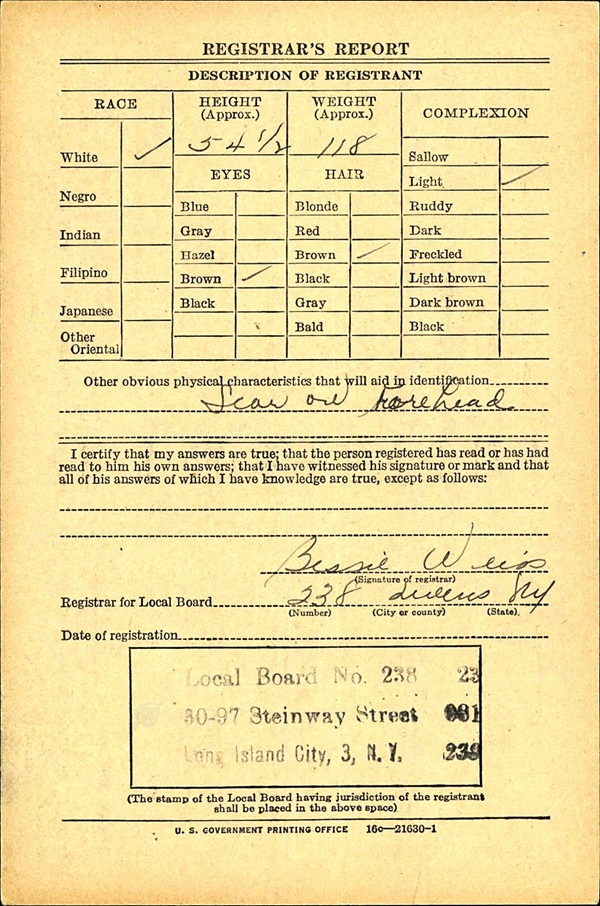 REGISTRAR'S REPORT
DESCRIPTION OF REGISTRANT
RACE
HEIGHT (Approx.)
WEIGHT (Approx.)
COMPLEXION
54 1/2
118
White ✓
Negro
Indian
Filipino
Japanese
Other Oriental
EYES
Blue
Gray
Hazel
Brown ✓
Black
HAIR
Blonde
Red
Brown ✓
Black
Gray
Bald
Sallow
Light ✓
Ruddy
Dark
Freckled
Light brown
Dark brown
Black
Other obvious physical characteristics that will aid in identification
Scar on Forehead
I certify that my answers are true; that the person registered has read or has had
read to him his own answers; that I have witnessed his signature or mark and that
all of his answers of which I have knowledge are true, except as follows:
Bessie Weiss
(Signature of registrar)
Registrar for Local Board 238 Queens NY
(Number) (City or county) (State)
Date of registration
Local Board No. 238 23
30-97 Steinway Street 081
Long Island City, 3, N. Y. 238
(The stamp of the Local Board having jurisdiction of the registrant
shall be placed in the above space)
U. S. GOVERNMENT PRINTING OFFICE 16c—21630-1